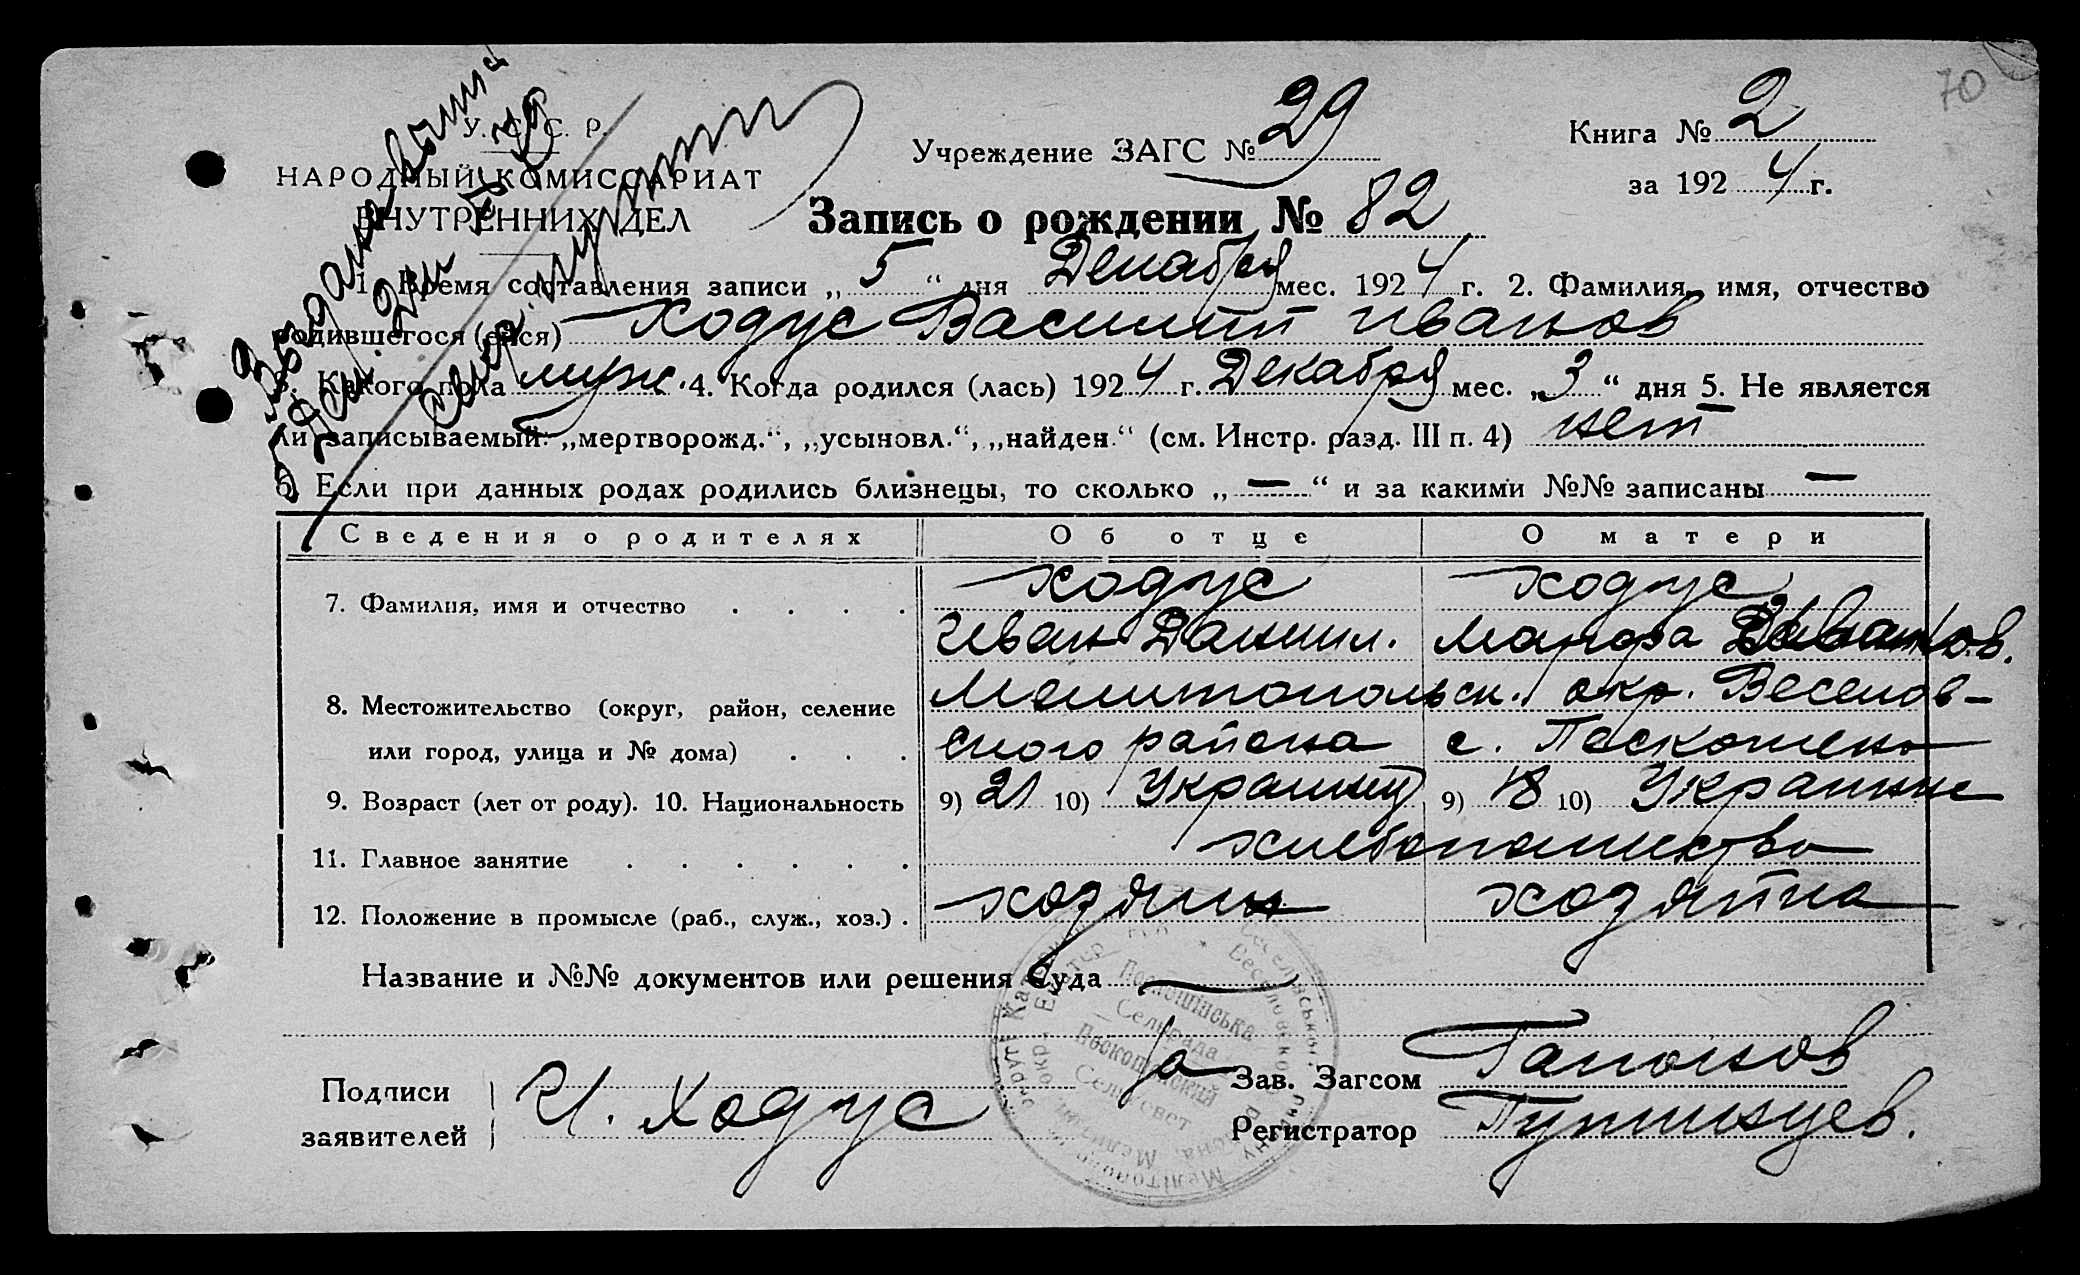 70
У. С. С. Р.
НАРОДНЫЙ КОМИССАРИАТ
ВНУТРЕННИХ ДЕЛ
Учреждение ЗАГС № 29
Книга № 2
за 192 4 г.
Запись о рождении № 82
1. Время составления записи „ 5 “ дня Декабря мес. 192 4 г. 2. Фамилия, имя, отчество
родившегося (ейся) Ходус Василий Иванов
3. Какого пола муж. 4. Когда родился (лась) 192 4 г. Декабря мес. „ 3 “ дня 5. Не является
ли записываемый: „мертворожд.“, „усыновл.“, „найден.“ (см. Инстр. разд. III п. 4) нет
6. Если при данных родах родились близнецы, то сколько „ — “ и за какими №№ записаны —
Сведения о родителях Об отце О матери
7. Фамилия, имя и отчество . . . . Ходус Ходус
Иван Данил. Марфа Иванов.
8. Местожительство (округ, район, селение Мелитопольск. окр. Веселов-
или город, улица и № дома) . . . ского района с. Пескошено
9. Возраст (лет от роду). 10. Национальность 9) 21 10) Украинец 9) 18 10) Украинк
11. Главное занятие . . . . . . хлебопашество
12. Положение в промысле (раб., служ., хоз.) . хозяин хозяйка
Название и №№ документов или решения Суда
Селърада
Сельсовет
Подписи
заявителей
И. Ходус
За Зав. Загсом Гапонов
Регистратор